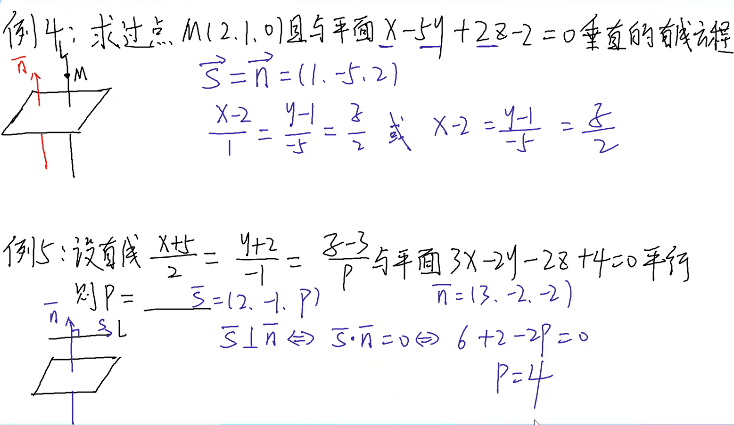 例4: 求过点 M(2.1.0)且与平面 x-5y+2z-2=0垂直的直线方程
n̄ L M
s⃗=n⃗=(1.-5.2)
(x-2)/1 = (y-1)/-5 = z/2 或 x-2 = (y-1)/-5 = z/2
例5:设直线 (x+5)/2 = (y+2)/-1 = (z-3)/p 与平面 3x-2y-2z+4=0 平行
则P=____ s̄=(2.-1.P) n̄=(3.-2.-2)
n̄ s L
s̄⊥n̄ ⇔ s̄·n̄=0 ⇔ 6+2-2P=0
P=4